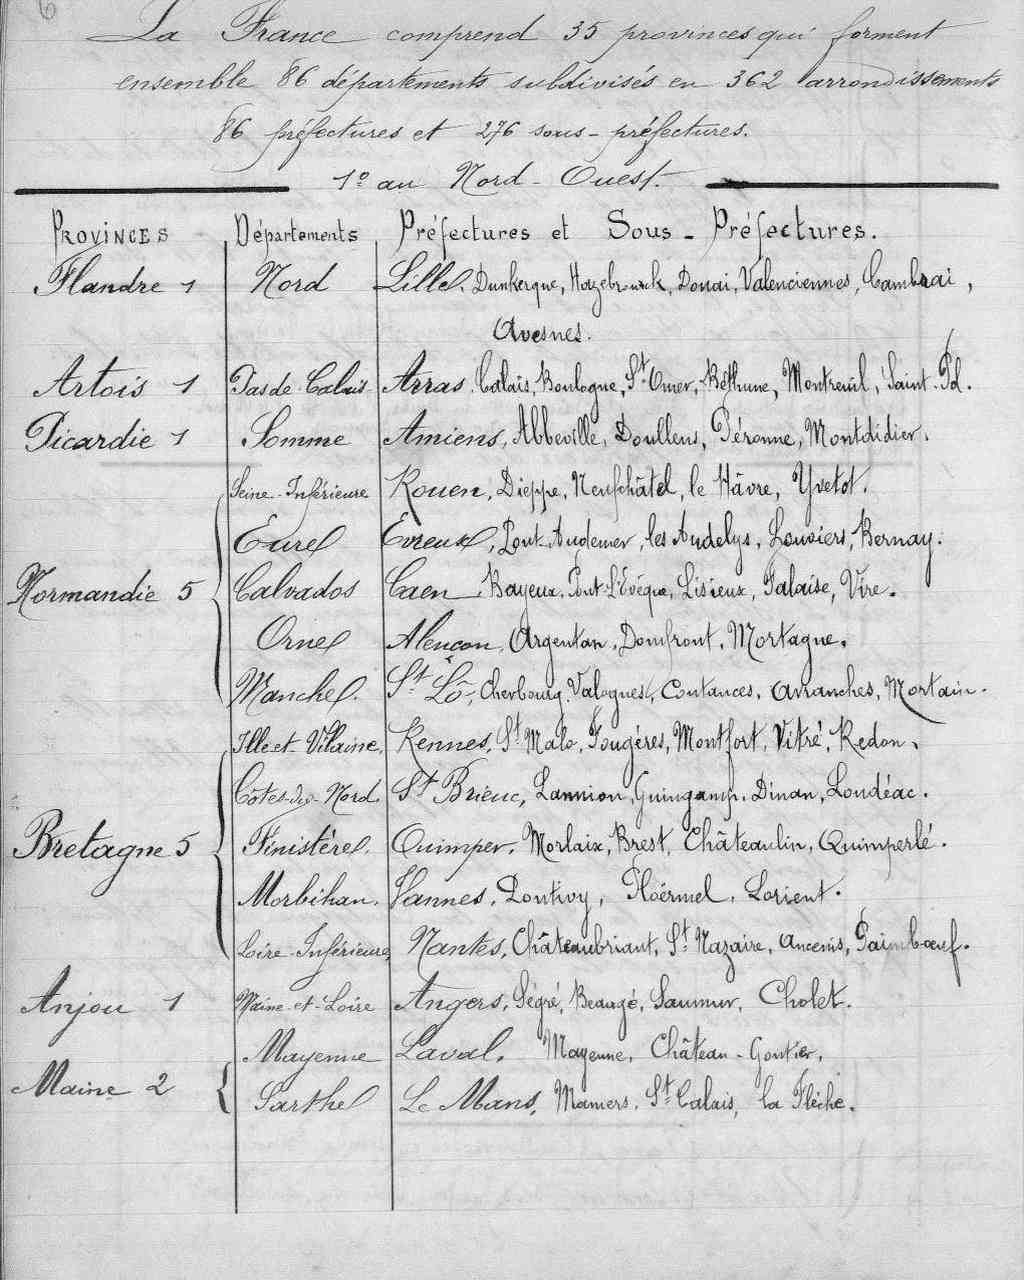 6
La France comprend 35 provinces qui forment
ensemble 86 départements subdivisés en 362 arrondissements
86 préfectures et 276 sous-préfectures.
1º au Nord-Ouest.
PROVINCES Départements Préfectures et Sous-Préfectures.
Flandre 1 Nord Lille, Dunkerque, Hazebrouck, Douai, Valenciennes, Cambrai,
Avesnes.
Artois 1 Pas de Calais Arras. Calais, Boulogne, St Omer, Béthune, Montreuil, Saint-Pol.
Picardie 1 Somme Amiens, Abbeville, Doullens, Péronne, Montdidier.
Seine-Inférieure Rouen, Dieppe, Neufchâtel, le Hâvre, Yvetot.
Eure Evreux, Pont-Audemer, les Andelys, Louviers, Bernay.
Normandie 5 Calvados Caen, Bayeux, Pont-L'Evêque, Lisieux, Falaise, Vire.
Orne Alençon, Argentan, Domfront, Mortagne.
Manche. St Lô, Cherbourg, Valognes, Coutances, Avranches, Mortain.
Ille et Vilaine, Rennes, St Malo, Fougères, Montfort, Vitré, Redon.
Côtes-du-Nord St Brieuc, Lannion, Guingamp, Dinan, Loudéac.
Bretagne 5 Finistère. Quimper, Morlaix, Brest, Châteaulin, Quimperlé.
Morbihan. Vannes, Pontivy, Ploërmel, Lorient.
Loire-Inférieure, Nantes, Châteaubriant, St Nazaire, Ancenis, Paimbœuf.
Anjou 1 Maine-et-Loire Angers, Ségré, Beaugé, Saumur, Cholet.
Mayenne Laval. Mayenne, Château-Gontier,
Maine 2 Sarthe Le Mans, Mamers, St Calais, la Flèche.